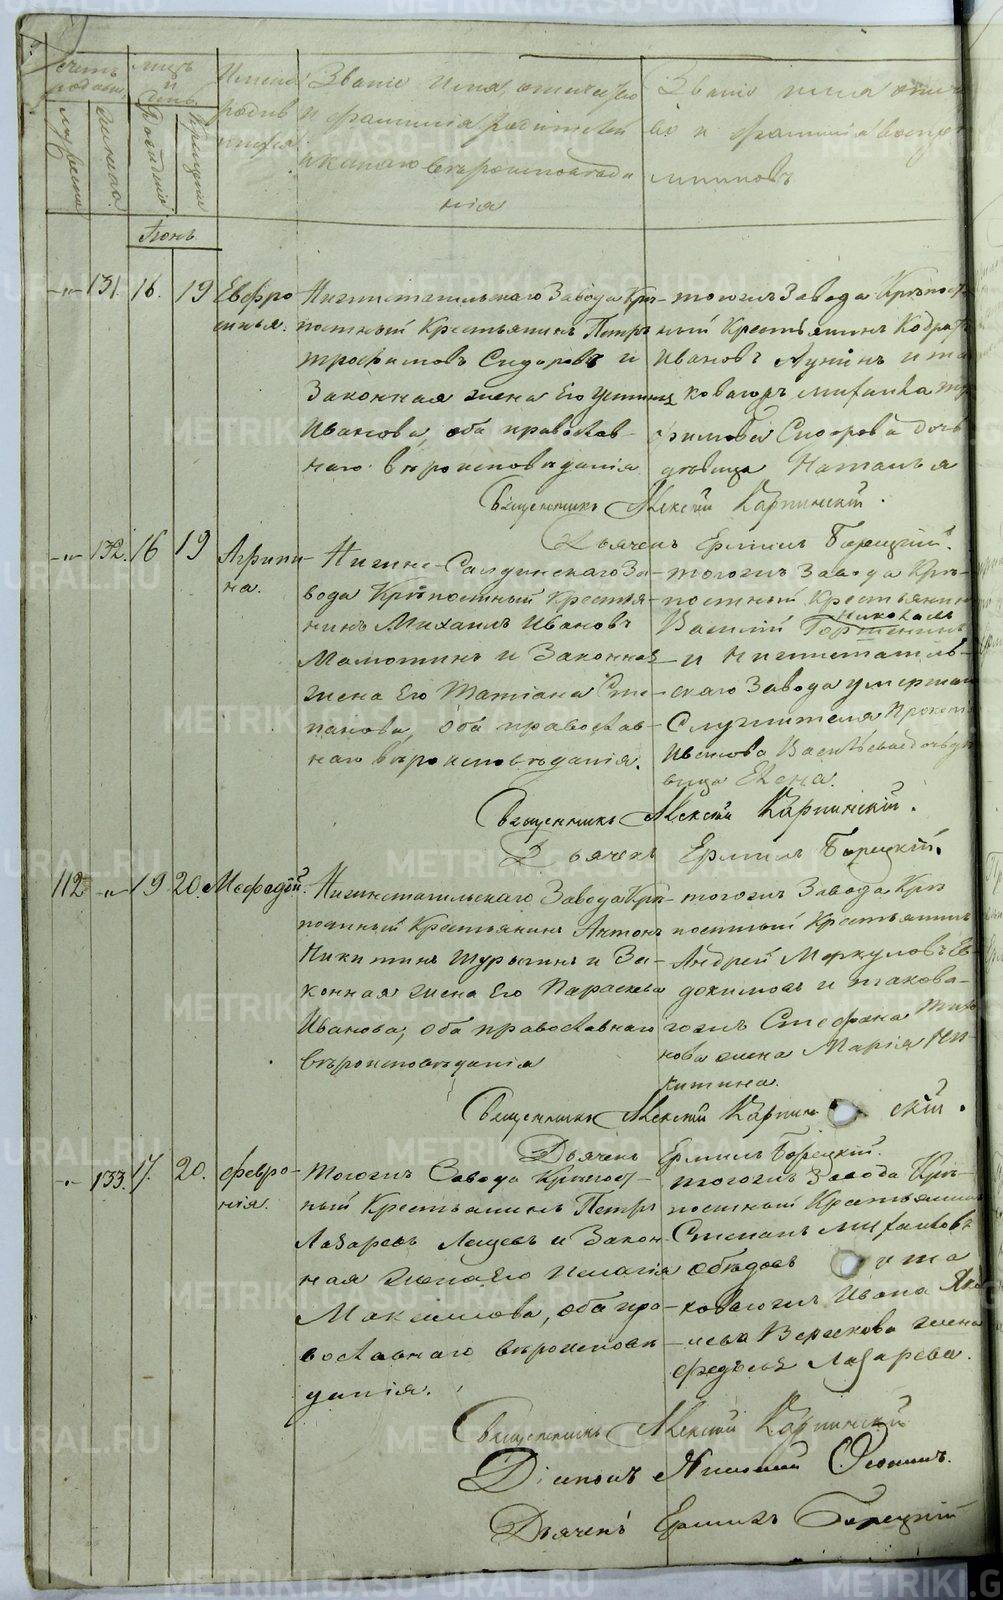 счетъ родивш.
мужеска
женска
мѣсяцъ и день
Рожденія
Крещенія
Имена родившихся
Званіе имя, отчество
и фамилія родителей
и какого вѣроисповѣда
нія
Званіе имя отчест
во и фамилія воспрі
мниковъ
Іюнь
-"- 131. 16. 19 Евфро
синья.
Нижнетагильскаго Завода Крѣ-
постный Крестьянинъ Петръ
Трофимовъ Сидоровъ и
Законная жена Его Устинья
Иванова, оба православ-
наго вѣроисповѣданія
тогожъ Завода Крѣпост
ный Крестьянинъ Кодратъ
Ивановъ Лунинъ и та
коваго Михаила Тро
фимова Сидорова дочь
дѣвица Наталья
Священникъ Алексій Карпинскій.
Дьячекъ Ермилъ Борецкій.
-"- 132. 16 19 Агрипи
на.
Нижне-Салдинскаго За-
вода Крѣпостный Крестья-
нинъ Михаилъ Ивановъ
Мамотинъ и Законная
жена Его Татіана Сте-
панова, оба православ-
наго вѣроисповѣданія.
тогожъ Завода Крѣ-
постный Крестьянинъ
Василій
и Нижнетагиль-
скаго Завода умершаго
Служителя Прокопія
Иванова Васильева дочь дѣ
вица Елена.
Священникъ Алексій Карпинскій.
Дьячекъ Ермилъ Борецкій.
112 -"- 19 20. Мефодій.
Нижнетагильскаго Завода Крѣ-
постный Крестьянинъ Антонъ
Никитинъ Шурыгинъ и За-
конная жена Его Параскева
Иванова, оба православнаго
вѣроисповѣданія
тогожъ Завода Крѣ
постный Крестьянинъ
Андрей Меркуловъ Ев
докимовъ и такова-
гожъ Стефана Тихо
нова жена Марія Ни-
китина.
Священникъ Алексій Карпинскій.
Дьячекъ Ермилъ Борецкій.
-"- 133. 17. 20. Февро-
нія.
Тогожъ Завода Крѣпост-
ный Крестьянинъ Петръ
Лазаревъ Лещевъ и Закон-
ная жена Его Пелагія
Максимова, оба пра-
вославнаго вѣроисповѣ
данія.
тогожъ Завода Крѣ-
постный Крестьянинъ
Степанъ Михайловъ
Обѣдовъ и та
ковагожъ Ивана Яко
влева жена
Федосья Лазарева.
Священникъ Алексій Карпинскій
Діаконъ Осокинъ.
Дьячекъ Ермилъ Борецкій
METRIKI.GASO-URAL.RU